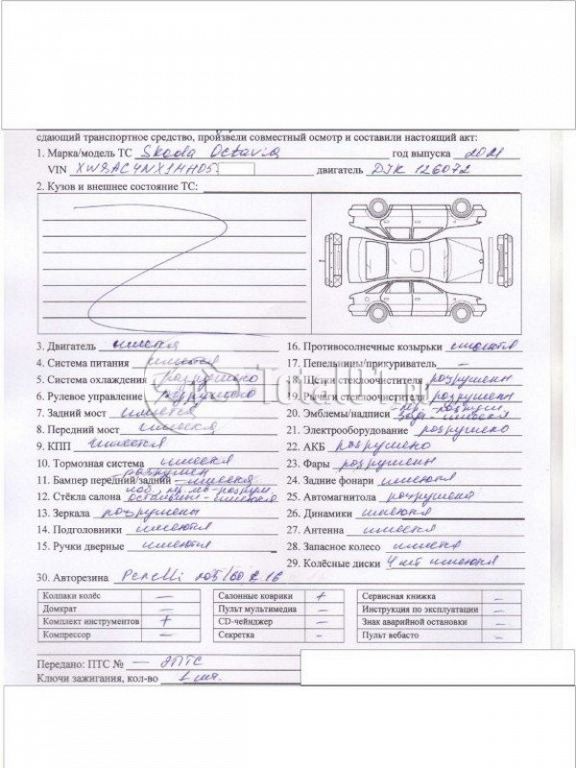 сдающий транспортное средство, произвели совместный осмотр и составили настоящий акт:
1. Марка/модель ТС Skoda Octavia год выпуска 2021
VIN XW8AC4NX1MH05 двигатель DJK 126072
2. Кузов и внешнее состояние ТС:
3. Двигатель имеется
4. Система питания имеется
5. Система охлаждения разрушено
6. Рулевое управление разрушено
7. Задний мост имеется
8. Передний мост имеется
9. КПП имеется
10. Тормозная система имеется
11. Бампер передний/задний разрушен - имеется
12. Стёкла салона лоб, пер. лев - разруш остальные - имеется
13. Зеркала разрушены
14. Подголовники имеются
15. Ручки дверные имеются
16. Противосолнечные козырьки имеются
17. Пепельницы/прикуриватель —
18. Щетки стеклоочистителя разрушены
19. Рычаги стеклоочистителя разрушены
20. Эмблемы/надписи пер - разруш зад - имеется
21. Электрооборудование разрушено
22. АКБ разрушено
23. Фары разрушены
24. Задние фонари имеются
25. Автомагнитола разрушена
26. Динамики имеются
27. Антенна имеется
28. Запасное колесо имеется
29. Колёсные диски 4 шт имеются
30. Авторезина Perelli 205/60 R 16
Колпаки колёс — Салонные коврики + Сервисная книжка —
Домкрат — Пульт мультимедиа — Инструкция по эксплуатации —
Комплект инструментов + CD-чейнджер — Знак аварийной остановки —
Компрессор — Секретка — Пульт вебасто —
Передано: ПТС № — ЭПТС
Ключи зажигания, кол-во 1 шт.
Total01.ru